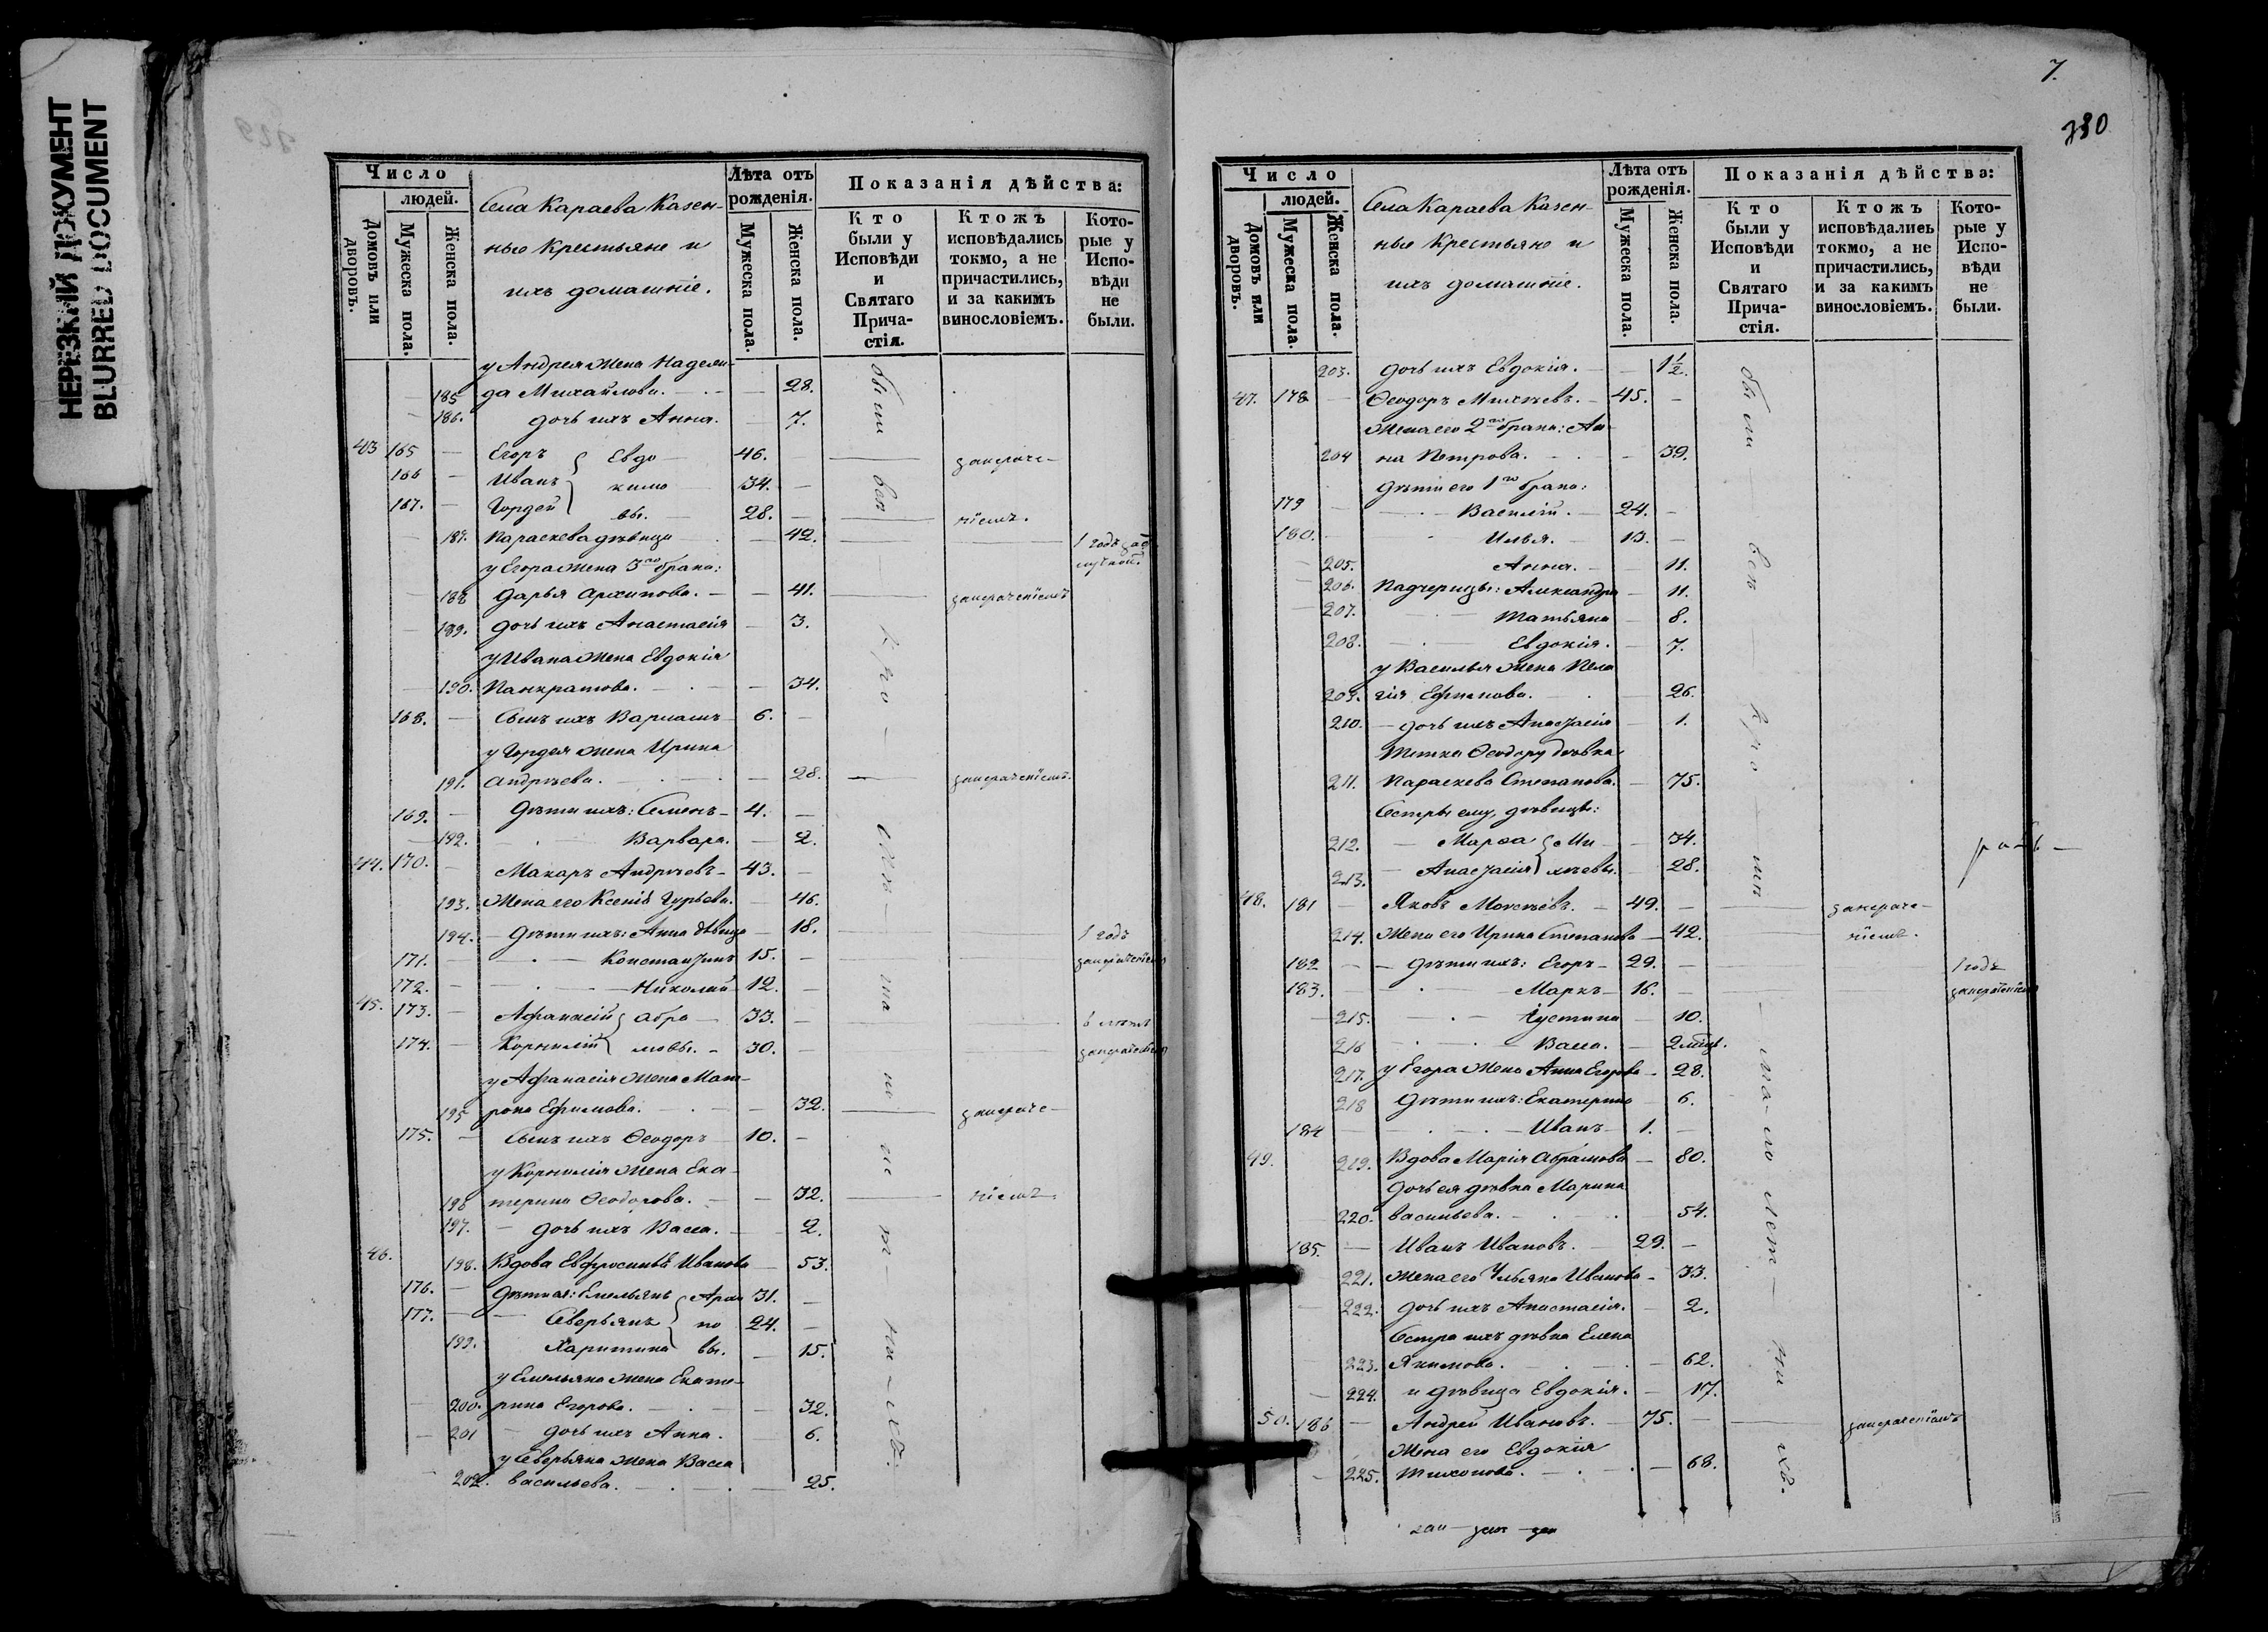 НЕРЕЗКИЙ ДОКУМЕНТ
BLURRED DOCUMENT
Число
людей.
Домовъ или дворовъ.
Мужеска пола.
Женска пола.
Села Караева Казен-
ные Крестьяне и
ихъ домашніе.
Лѣта отъ рожденія.
Мужеска пола.
Женска пола.
Показанія дѣйства:
Кто были у Исповѣди и Святаго Причастія.
Ктожъ исповѣдались токмо, а не причастились, и за какимъ винословіемъ.
Которые у Исповѣди не были.
у Андрея жена Надеж-
185 да Михайлова. 28.
186. дочь ихъ Анна. 7.
43 165 Егоръ Евдо 46. запераче-
166 Иванъ кимо 34.
167. Гордей вы. 28. ніемъ.
187. Параскева дѣвица 42. 1 годъ
у Егора жена 3го брака:
188 Дарья Архипова. 41.
189. дочь ихъ Анастасія 3.
у Ивана жена Евдокія
190. Панкратова. 34.
168. Сынъ ихъ Варлаамъ 6.
у Гордея жена Ирина
191. Андреева. 28.
169. Дѣти ихъ: Семенъ 4.
192. Варвара. 2.
44. 170. Макаръ Андреевъ 43.
193. Жена его Ксенія Гурьева. 46.
194. Дѣти ихъ: Анна дѣвица 18. 1 годъ
171. Константинъ 15.
172. Николай 12.
45. 173. Афанасій Абра 33. 6 лѣтъ
174. Корнилій мовы. 30.
у Афанасія жена Мат-
195 рона Ефимова. 32.
175. Сынъ ихъ Ѳеодоръ 10.
у Корнилія жена Ека-
196 терина Ѳеодорова. 32. ніемъ.
197. дочь ихъ Васса. 2.
46. 198. Вдова Евфросинія Иванова 53.
176. Дѣти ея: Емельянъ 31.
177. Северьянъ по 24.
199. Харитина вы. 15.
у Емельяна жена Екате-
200. рина Егорова. 32.
201 дочь ихъ Анна. 6.
у Северьяна жена Васса
202. Васильева. 25.
7.
380
Число
людей.
Домовъ или дворовъ.
Мужеска пола.
Женска пола.
Села Караева Казен-
ные Крестьяне и
ихъ домашніе.
Лѣта отъ рожденія.
Мужеска пола.
Женска пола.
Показанія дѣйства:
Кто были у Исповѣди и Святаго Причастія.
Ктожъ исповѣдались токмо, а не причастились, и за какимъ винословіемъ.
Которые у Исповѣди не были.
203. дочь ихъ Евдокія. 1½.
47. 178 Ѳеодоръ Михѣевъ. 45.
Жена его 2го брака: Ан-
204 на Петрова. 39.
Дѣти его 1го брака:
179 Василій. 24.
180. Илья. 13.
205. Анна. 11.
206. Падчерицы: Александра 11.
207. Татьяна 8.
208. Евдокія. 7.
у Василья жена Пела
209. гія Ефимова. 26.
210. дочь ихъ Анастасія 1.
Тетка Ѳеодору дѣвка
211. Параскева Степанова. 75.
Сестры ему, дѣвицы:
212. Марѳа Ми 34.
213. Анастасія хѣевы. 28.
48. 181 Яковъ Моисѣевъ. 49.
214. Жена его Ирина Степанова 42. ніемъ.
182 Дѣти ихъ: Егоръ 29. 1 годъ
183. Маркъ 16.
215. Іустина 10.
216 Васса. 2 мѣц.
217. у Егора жена Анна Егорова 28.
218 Дѣти ихъ: Екатерина 6.
184 Иванъ 1.
49. 219. Вдова Марія Абрамова 80.
Дочь ея дѣвка Марина
220. Васильева. 54.
185. Иванъ Ивановъ. 29.
221. Жена его Ульяна Иванова 33.
222. дочь ихъ Анастасія. 2.
Сестра ихъ дѣвка Елена
223. Якимова. 62.
224. и дѣвица Евдокія. 17.
50. 186 Андрей Ивановъ. 75.
Жена его Евдокія
225. Тихонова. 68.